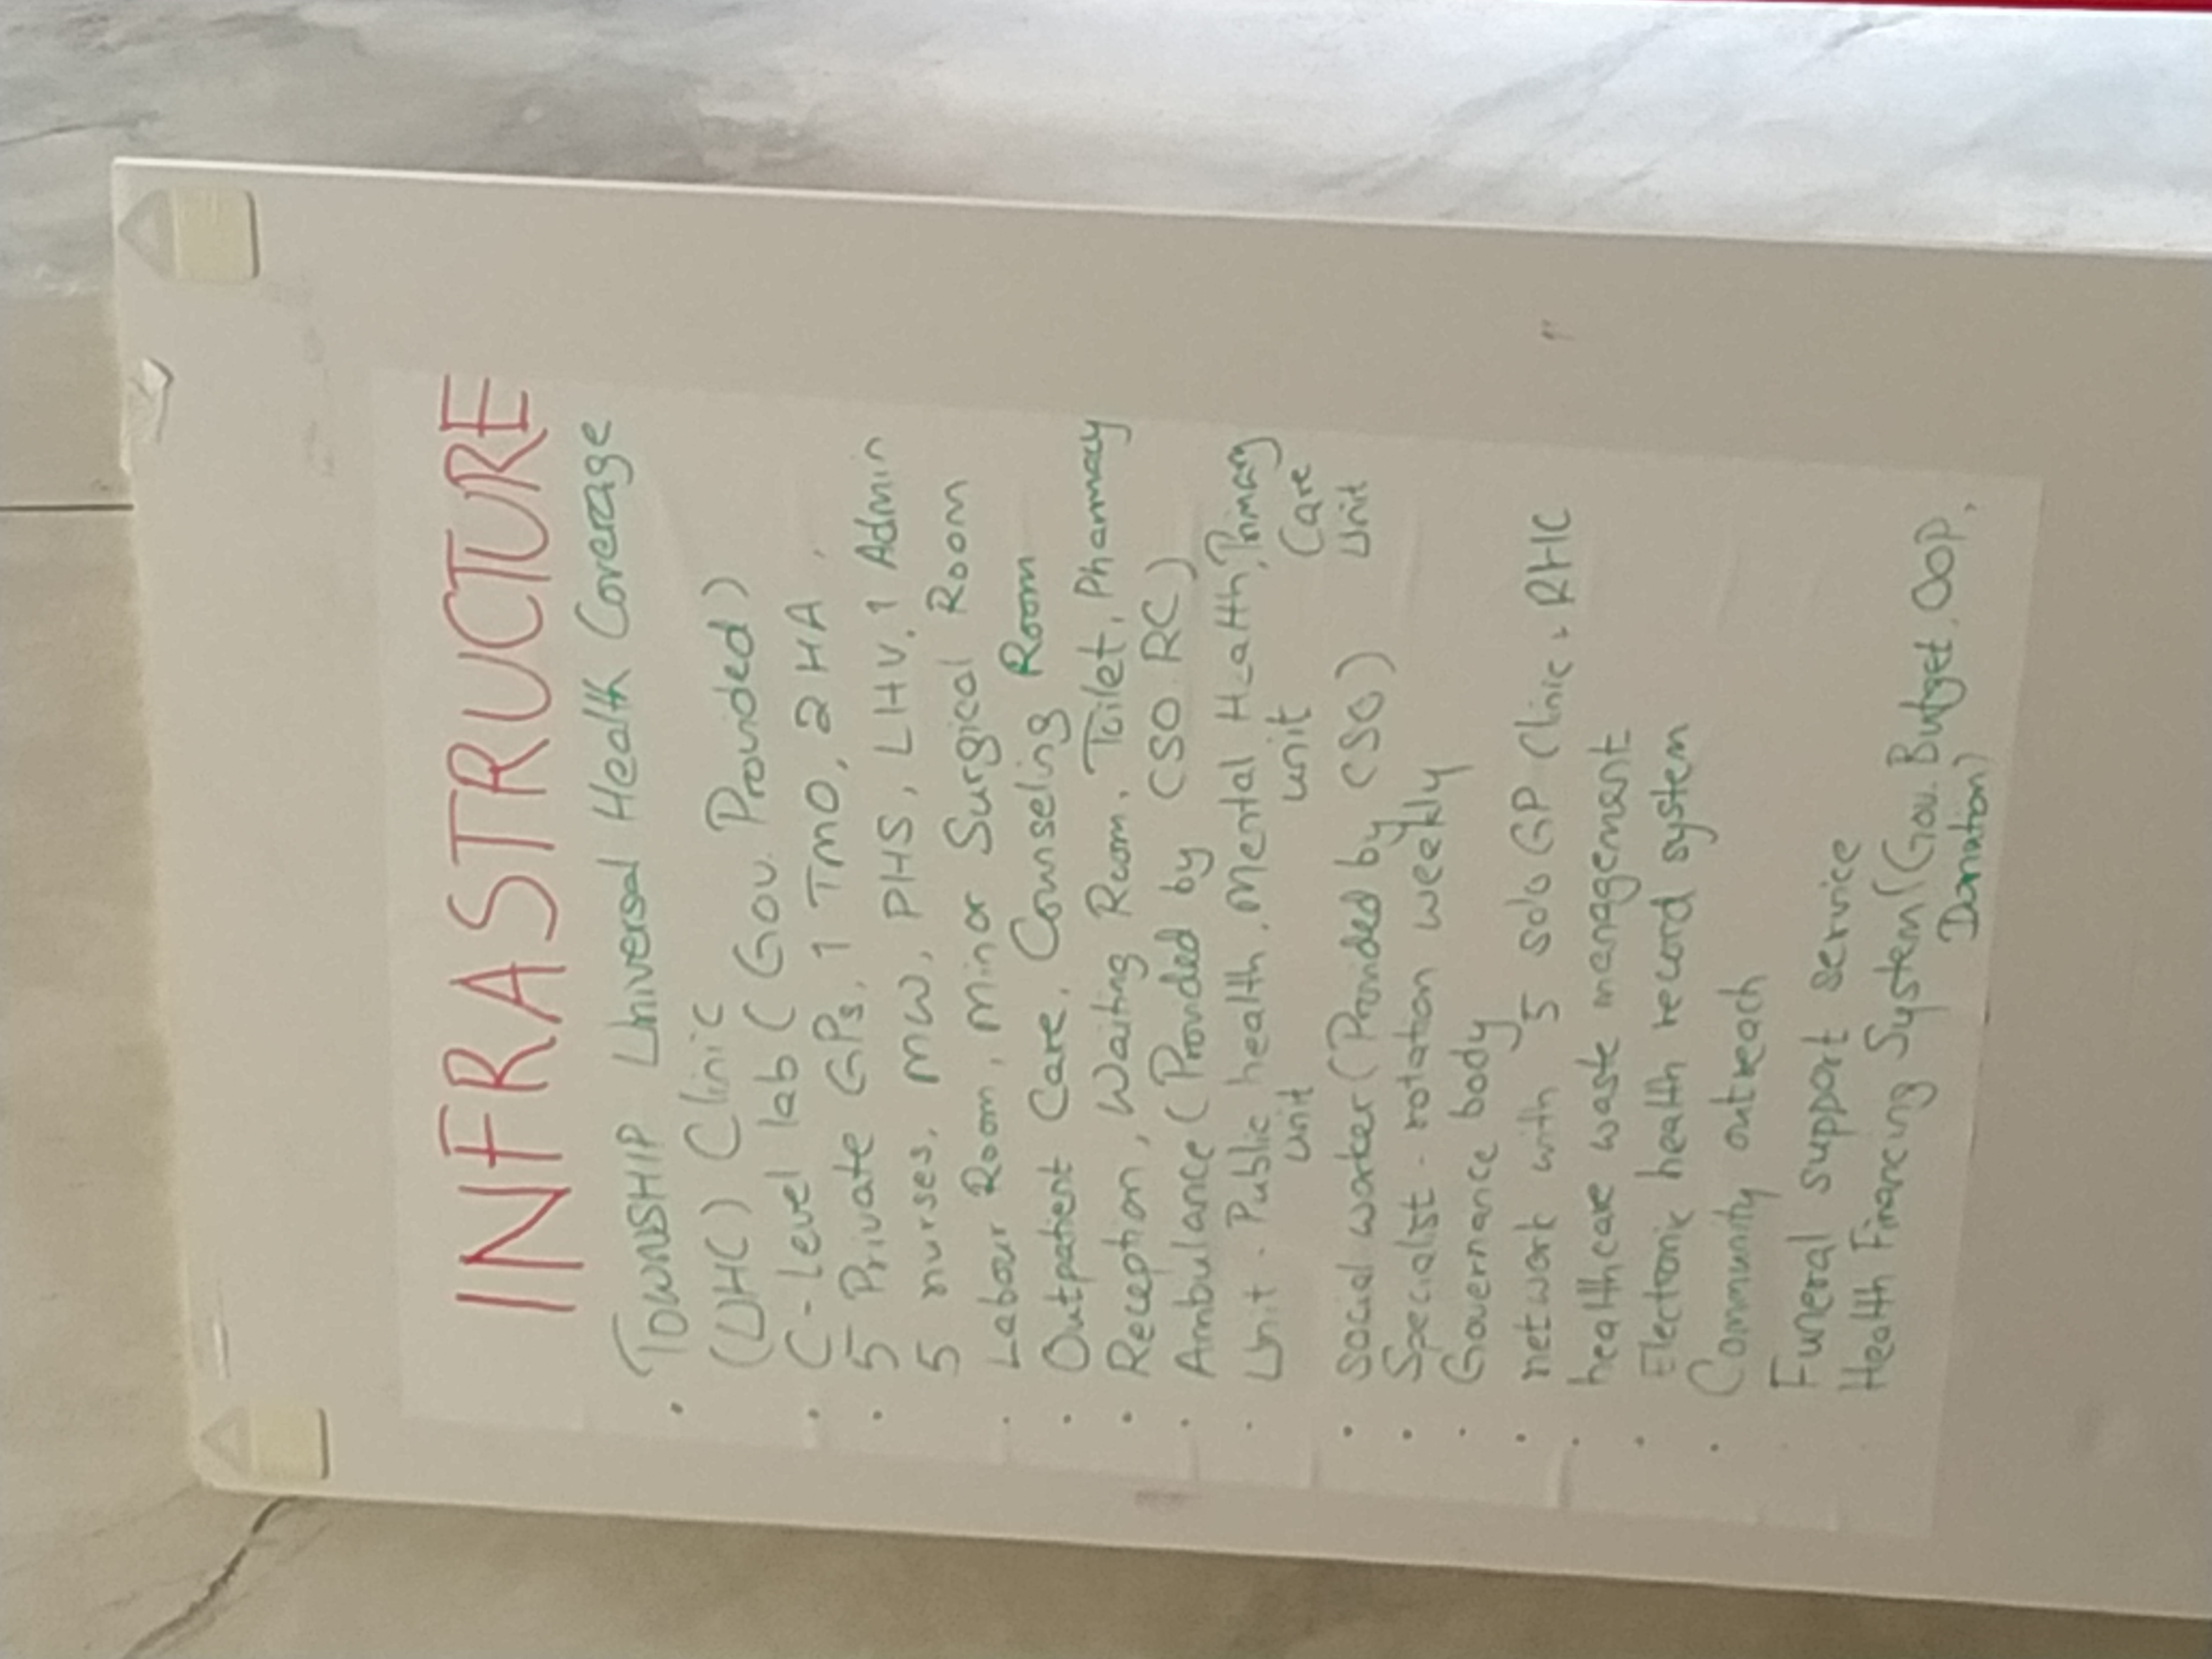 INFRASTRUCTURE
• TOWNSHIP Universal Health Coverage
(UHC) Clinic
• C-Level lab (Gov. Provided)
• 5 Private GPs, 1 TMO, 2 HA,
5 nurses, MW, PHS, LHV, 1 Admin
• Labour Room, Minor Surgical Room
• Outpatient Care, Counseling Room
• Reception, Waiting Room, Toilet, Pharmacy
• Ambulance (Provided by CSO. RC)
• Unit - Public health, Mental Health, Primary
unit unit Care
• social worker (Provided by CSO) Unit
• Specialist - rotation weekly
• Governance body
• network with 5 solo GP Clinic, RHC
• healthcare waste management
• Electronic health record system
• Community outreach
• Funeral support service
• Health Financing System (Gov. Butget, OOP,
Donation)